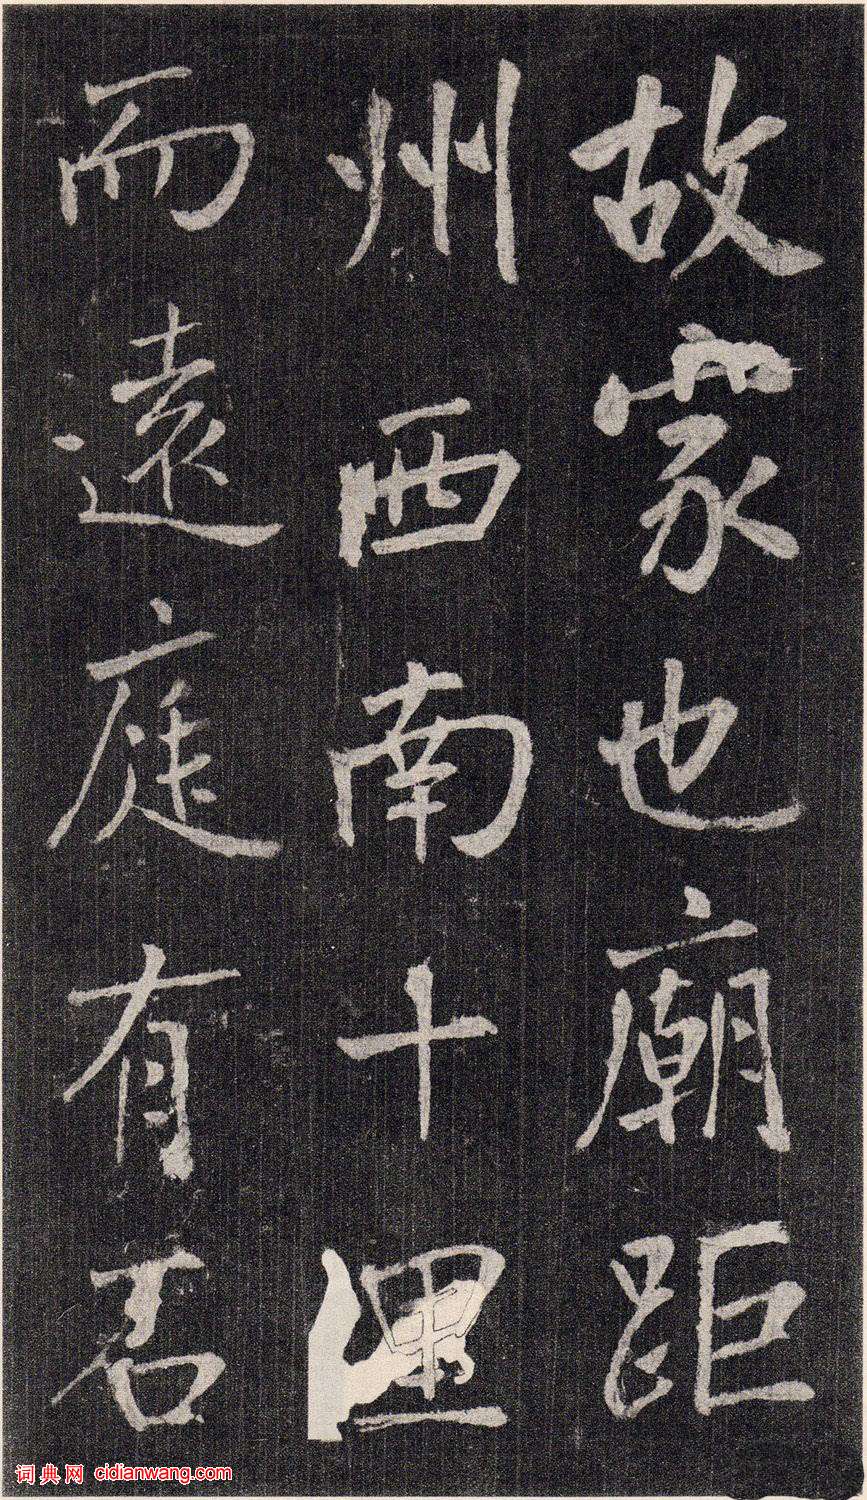 故家也廟距
州西南十里
而遠庭有
词典网 cidianwang.com